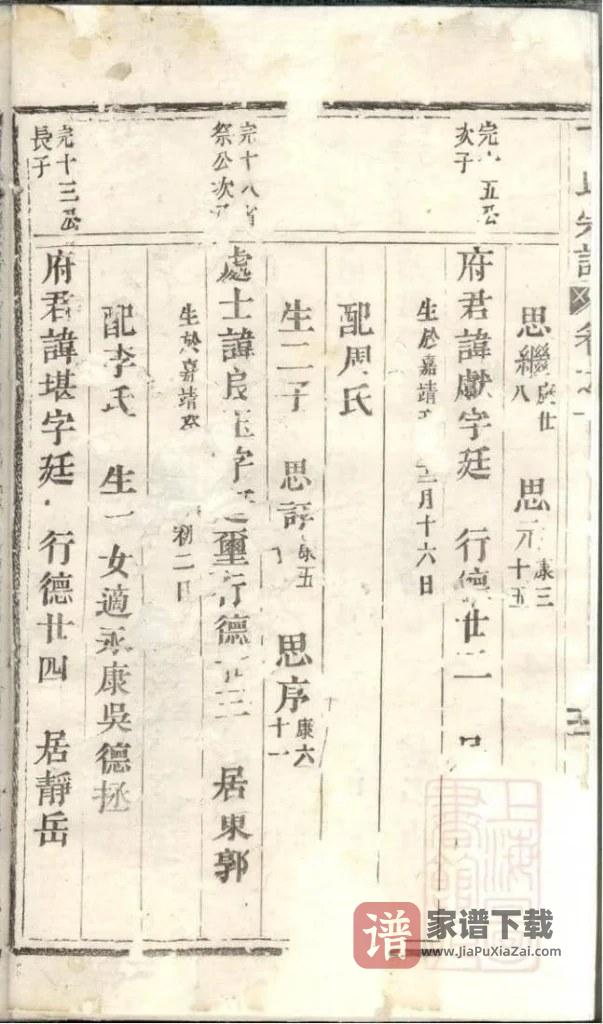 氏宗譜 卷之
思繼 康廿八 思 康三十五
完十五公次子
府君諱獻字廷 行德廿二
生於嘉靖 月十六日
配周氏
生二子 思諄 康五 思序 康六十一
完十八省祭公次子
處士諱良玉字廷璽行德廿三 居東郭
生於嘉靖 初二日
配李氏 生一女適永康吳德拯
完十三公長子
府君諱堪字廷 行德廿四 居靜岳
上海圖書館
谱 家谱下载
www.JiaPuXiaZai.com